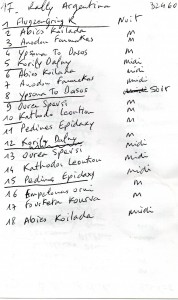 17. Rally Argentina 32460
1 Flugzeugring R Nuit
2 Abios Koilada M
3 Anodon Fammakas m
4 Ypsona To Dasos m
5 Korify Dafny midi
6 Abios Koilada midi
7 Anodon Fammakas midi
8 Ypsona To Dasos Soir
9 Ouren Spevsi m
10 Kathodo Leontiou m
11 Pedines Epidaxy m
12 Korify Dafny
13 Ouren Spevsi midi
14 Kathodos Leontiou midi
15 Pedines Epidaxy midi
16 m
17 Kourva m
18 Abios Koilada midi